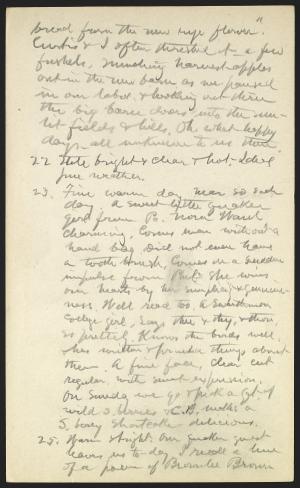 bread from the new rye flour".
Curtis & I often threshed it - a few
bushels, munching harvest apples
out in the new barn as we paused
in our labor & looking out thru
the big barn doors into the sun-
lit fields & hills, Oh, what happy
days - all unknown to us then
22 Still bright & clear & hot - Ideal
fine weather.
23. Fine warm day, near 80 each
day. A sweet little Quaker
girl from Pa. Nora Waln
charming, Comes man without a
hand bag did not even have
a tooth brush, Comes on a sudden
impulse from Phil. She wins
our hearts by her simplicity & genuine-
ness Well read too. A Swarthmore
College girl, Says thee & thy, & thou
so prettily. Knows the birds well.
has written & printed things about
them. A fine face, clear cut
regular, with sweet expression.
On Sunday we go & pick a qt of
wild S. berries & C.B. makes a
S. berry Shortcake delicious.
25. Warm & bright. Our Quaker guest
leaves us to-day. I recall a line
of a poem of Brownlee Brown